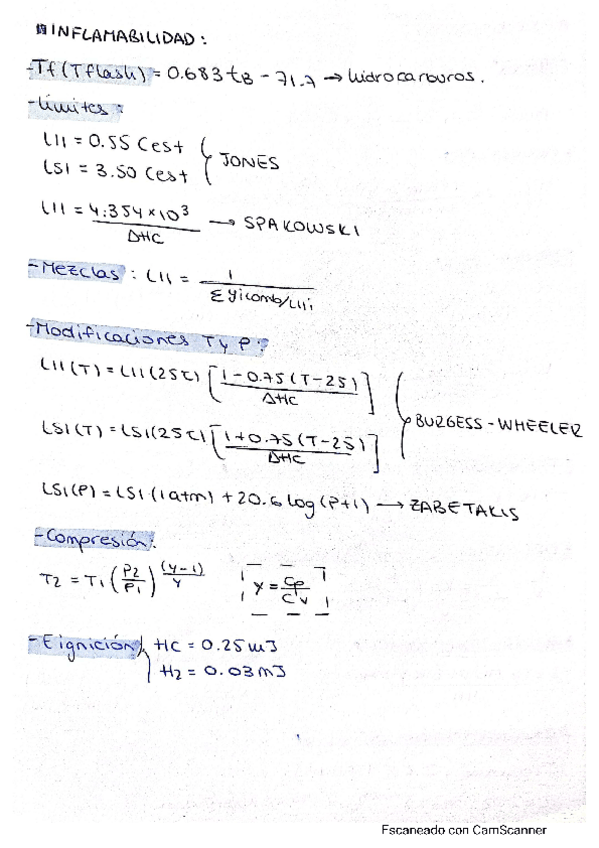 INFLAMABILIDAD:
-Tf(Tflash) = 0.683 tB - 71.7 → hidrocarburos.
-Límites:
LII = 0.55 Cest
LSI = 3.50 Cest
JONES
LII = 4.354 × 10³ / ΔHC → SPAKOWSKI
-Mezclas: LII = 1 / Σ yicomb/LIIi
-Modificaciones T y P:
LII(T) = LII(25ºC) [1 - 0.75 (T-25) / ΔHC]
LSI(T) = LSI(25ºC) [1+0.75 (T-25) / ΔHC]
BURGESS-WHEELER
LSI(P) = LSI (1atm) + 20.6 log (P+1) → ZABETAKIS
-Compresión:
T2 = T1 (P2/P1)^((γ-1)/γ) γ = Cp/Cv
-E ignición HC = 0.25 mJ
H2 = 0.03 mJ
Escaneado con CamScanner